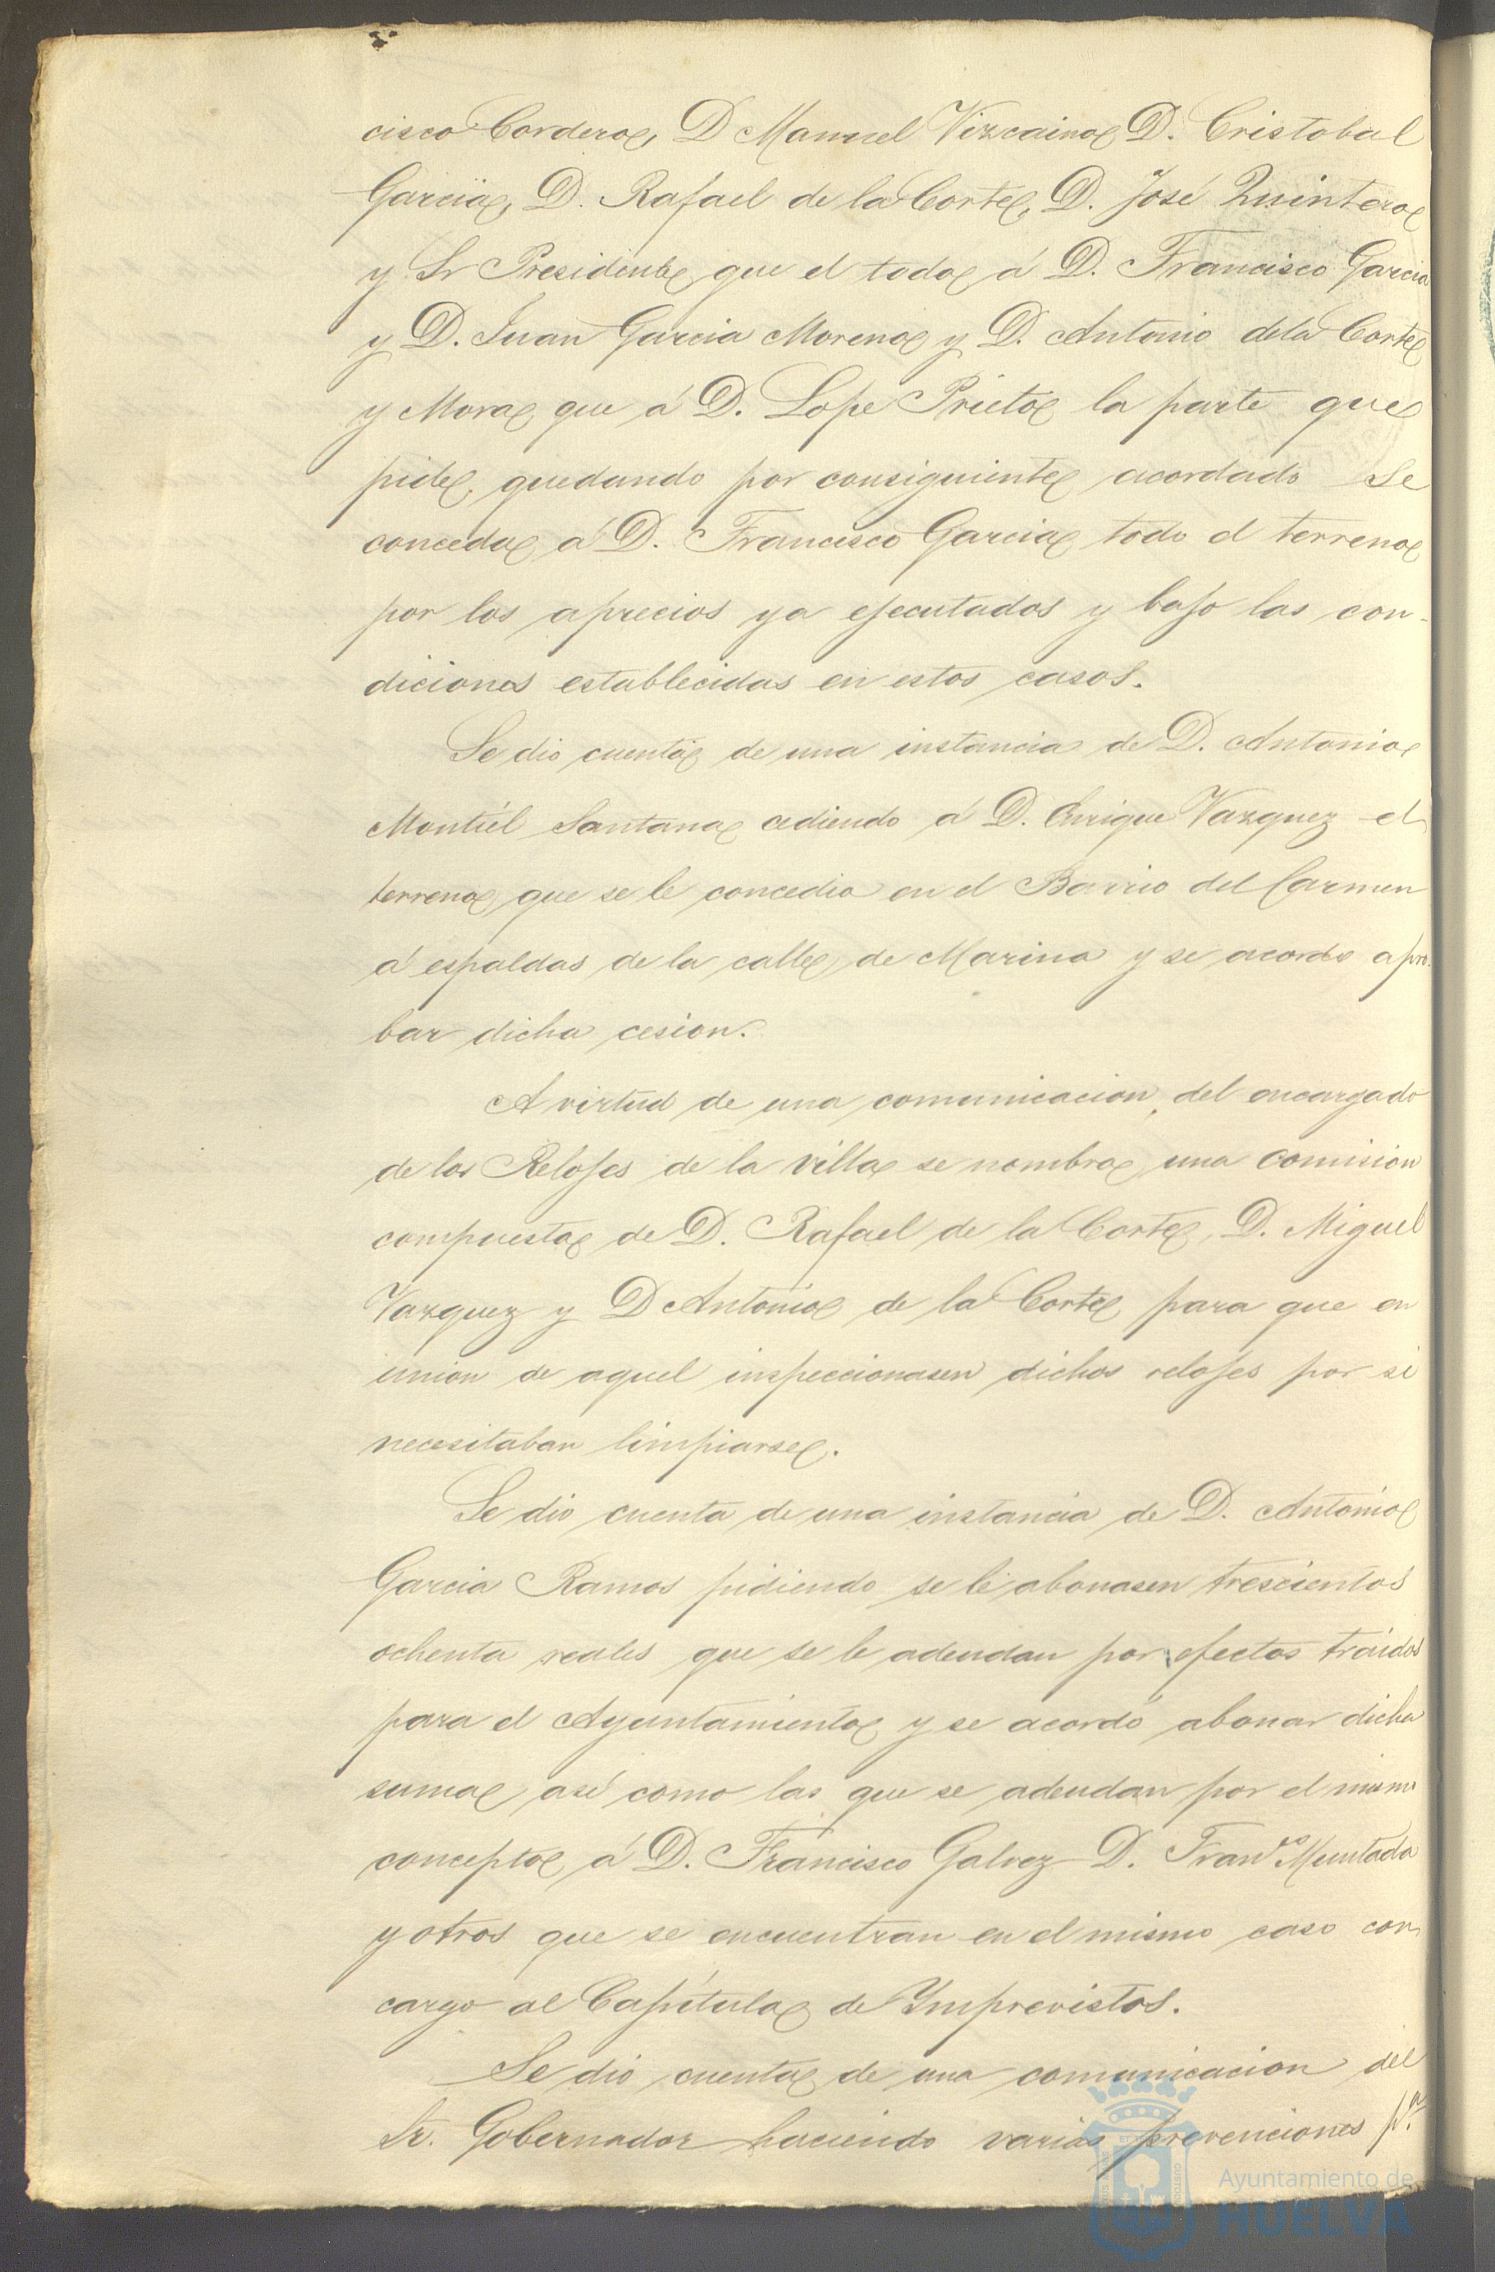 cisco Cordero, D Manuel Vizcaino D. Cristobal
Garcia, D. Rafael de la Corte, D. José Quintero
y Sr Presidente que el todo á D. Francisco Garcia
y D. Juan Garcia Moreno y D. Antonio dela Corte
y Mora que á D. Lope Prieto la parte que
pide, quedando por consiguiente acordado se
conceda á D. Francisco Garcia todo el terreno
por los aprecios ya ejecutados y bajo las con-
diciones establecidas en estos casos.
Se dio cuenta de una instancia de D. Antonio
Montiel Santana cediendo á D. Enrique Vazquez el
terreno que se le concedio en el Barrio del Carmen
á espaldas de la calle de Marina y se acordo apro-
bar dicha cesion.
A virtud de una comunicacion del encargado
de los Relojes de la villa se nombro una comision
compuesta de D. Rafael de la Corte, D. Miguel
Vazquez y D Antonio de la Corte para que en
union de aquel inspeccionasen dichos relojes por si
necesitaban limpiarse.
Se dio cuenta de una instancia de D. Antonio
Garcia Ramos pidiendo se le abonasen trescientos
ochenta reales que se le adeudan por efectos traidos
para el Ayuntamiento y se acordó abonar dicha
suma asi como las que se adeudan por el mismo
concepto á D. Francisco Galvez D. Franco Muntada
y otros que se encuentran en el mismo caso con
cargo al Capítulo de Ymprevistos.
Se dio cuenta de una comunicacion del
Sr. Gobernador haciendo varias prevenciones p.a
Ayuntamiento de
HUELVA